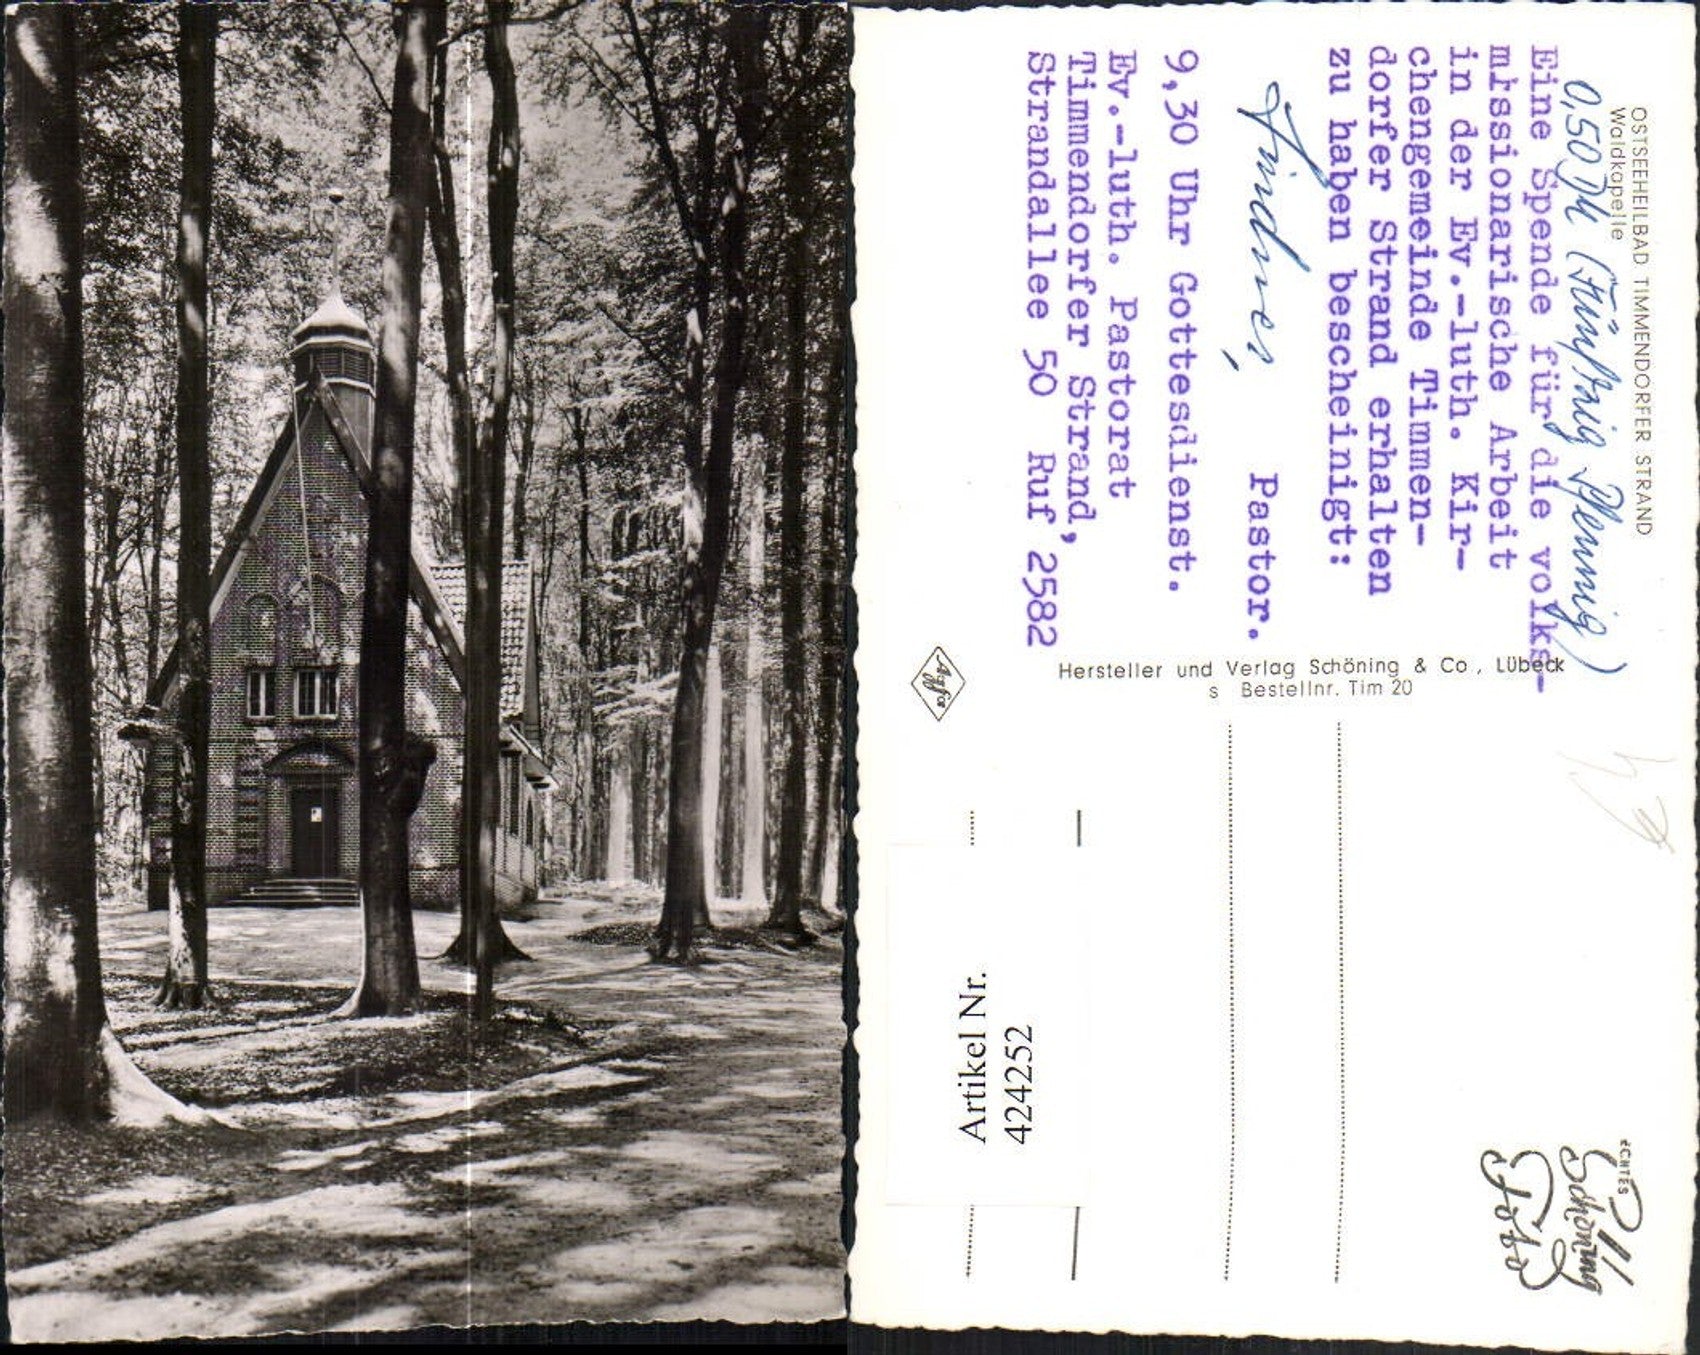 OSTSEEHEILBAD TIMMENDORFER STRAND
Waldkapelle
0,50 DM (Fünfzig Pfennig)
Eine Spende für die volks-
missionarische Arbeit
in der Ev.-luth. Kir-
chengemeinde Timmen-
dorfer Strand erhalten
zu haben bescheinigt:
Pastor.
9,30 Uhr Gottesdienst.
Ev.-luth. Pastorat
Timmendorfer Strand,
Strandallee 50 Ruf 2582
Agfa
Hersteller und Verlag Schöning & Co., Lübeck
s Bestellnr. Tim 20
Artikel Nr.
424252
ECHTES
Schöning
Foto